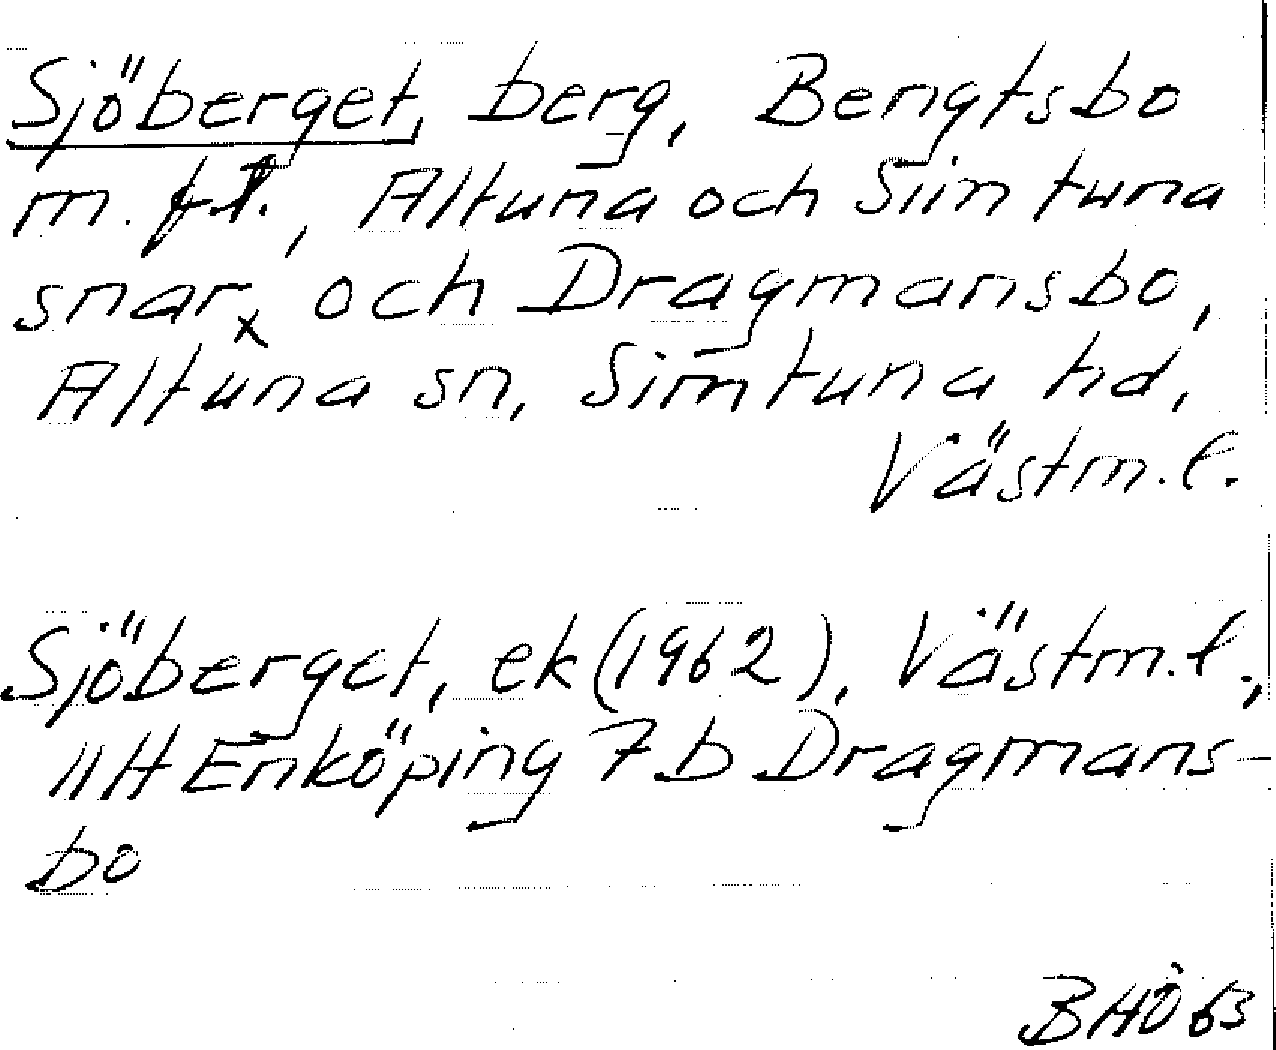 Sjöberget, berg, Bengtsbo
m. fl., Altuna och Simtuna
snar, och Dragmansbo,
Altuna sn, Simtuna hd,
Västm. l.
Sjöberget, ek (1962), Västm. l.,
11H Enköping 7b Dragmans-
bo
BHÖ 63